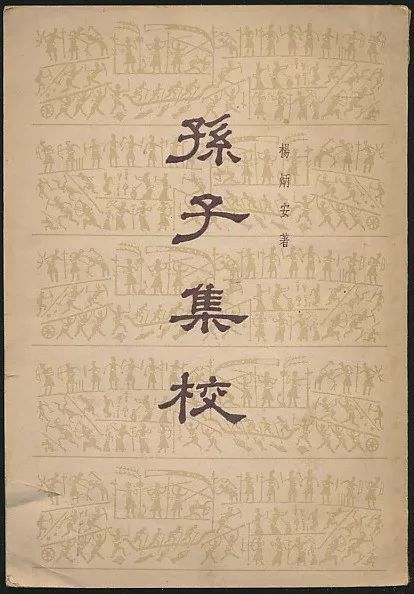 孫子集校
楊炳安著